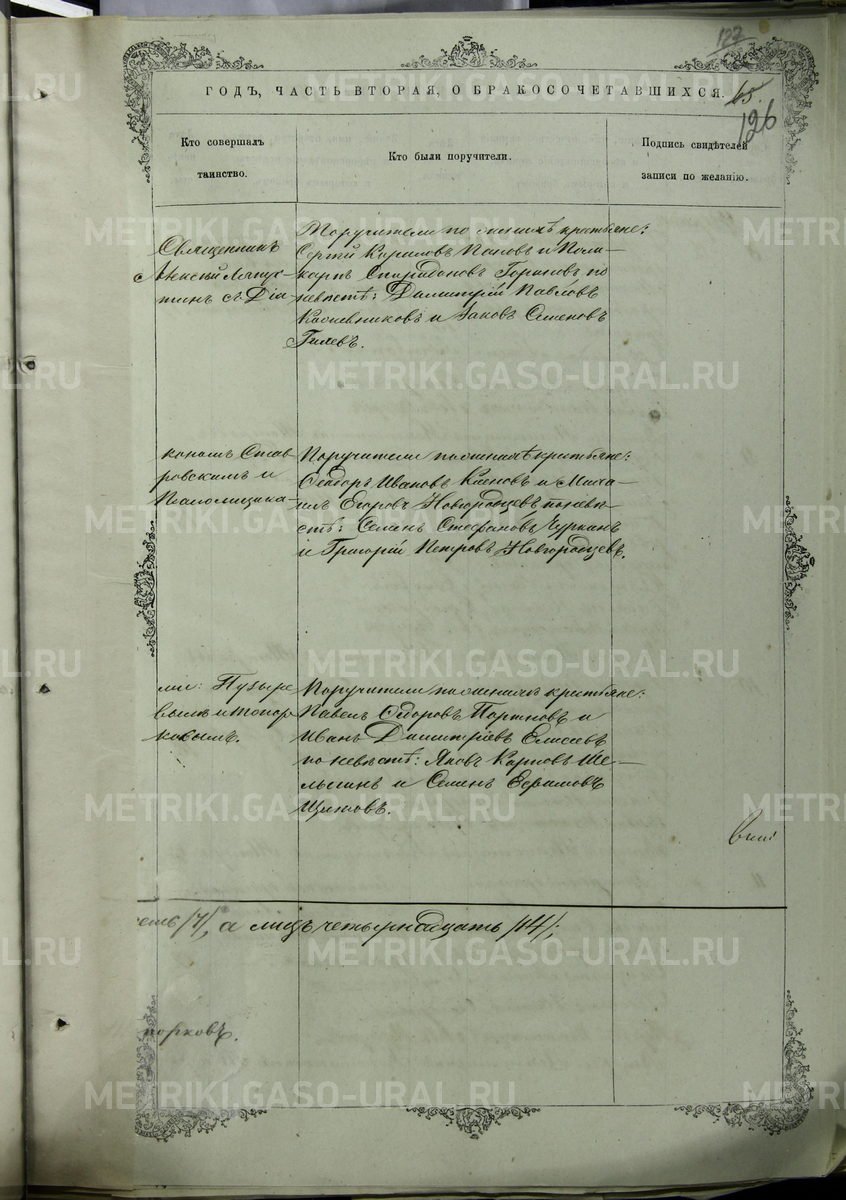 127
ГОДЪ, ЧАСТЬ ВТОРАЯ, О БРАКОСОЧЕТАВШИХСЯ.
65.
126
Кто совершалъ
таинство.
Кто были поручители.
Подпись свидѣтелей
записи по желанію.
Священникъ
Алексій Лапус-
тинъ съ Діа-
Поручители по женихѣ крестьяне:
Сергій Кириловъ Пановъ и Поли-
карпъ Спиридоновъ по
невѣстѣ: Димитрій Павловъ
и Іаковъ Семеновъ
Гилевъ.
кономъ Став-
ровскимъ и
Псаломщика-
Поручители по женихѣ крестьяне:
Ѳеодоръ Ивановъ и Миха-
илъ Егоровъ Новгородцевъ по невѣ-
стѣ: Семенъ Стефановъ Чуркинъ
и Григорій Петровъ Новгородцевъ.
ми: Пузыре
вымъ и Топор
ковымъ.
Поручители по женихѣ крестьяне:
Павелъ Ѳедоровъ Портновъ и
Иванъ Димитріевъ Елисеевъ
по невѣстѣ: Яковъ Карповъ Ше-
и Семенъ Ефимовъ
семь /7/, а лицъ четырнадцать /14/;
порковъ.
METRIKI.GASO-URAL.RU